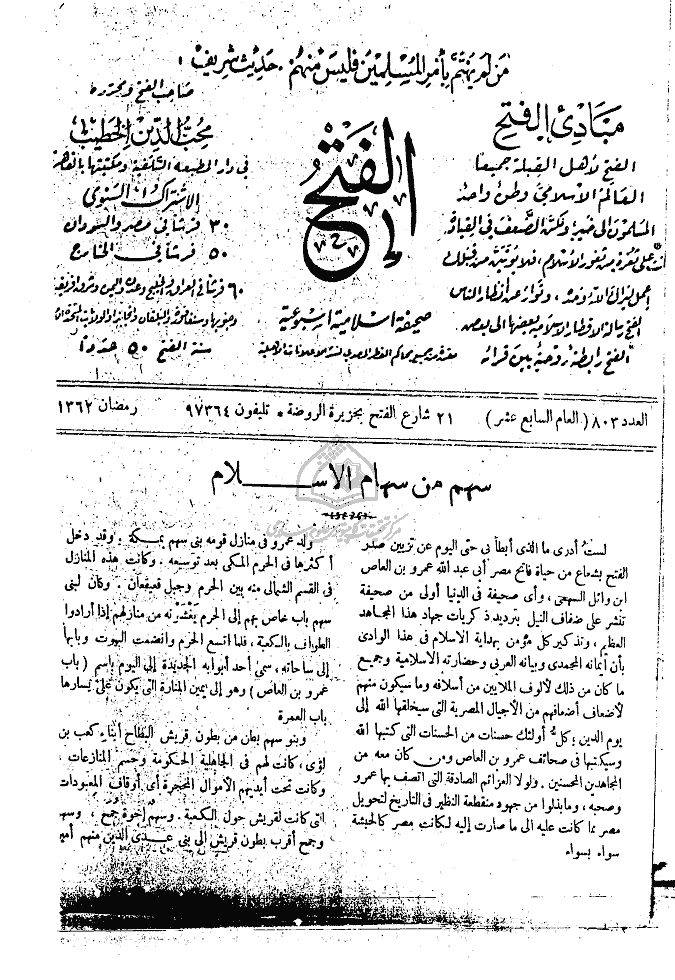 من لم يهتم بأمر المسلمين فليس منهم . حديث شريف
مبادئ الفتح
الفتح لأهل القبلة جميعا
العالم الاسلامي وطن واحد
المسلمون الى خير ولكن الضعف في القيادة
أنت على ثغرة من ثغور الاسلام ، فلا يؤتين من قبلك
إعمل ليراك الله وحده ، وتوار عن أنظار الناس
الفتح رسالة الاقطار الاسلامية بعضها الى بعض
الفتح رابطة روحية بين قرائه
الفتح
صحيفة اسلامية اسبوعية
صاحب الفتح ومحرره
محب الدين الخطيب
في دار المطبعة السلفية ومكتبتها بالقاهرة
الاشتراك السنوى
٣٠ قرشا في مصر والسودان
٥٠ قرشا في الخارج
سنة الفتح ٥٠ عددا
العدد ٨٠٣ ( العام السابع عشر ) ٢١ شارع الفتح بجزيرة الروضة * تليفون ٩٧٣٦٤ رمضان ١٣٦٢
سهم من سهام الاســـلام
لست أدرى ما الذى أبطأ بى حتى اليوم عن تزيين صدر
الفتح بشعاع من حياة فاتح مصر أبى عبد الله عمرو بن العاص
ابن وائل السهمى ، وأى صحيفة فى الدنيا أولى من صحيفة
تنشر على ضفاف النيل بترديد ذكريات جهاد هذا المجاهد
العظيم ، وتذكير كل مؤمن بهداية الاسلام فى هذا الوادى
بأن أيمانه المحمدى وبيانه العربى وحضارته الاسلامية وجميع
ما كان من ذلك لألوف الملايين من أسلافه وما سيكون منهم
لأضعاف أضعافهم من الأجيال المصرية التى سيخلقها الله إلى
يوم الدين ؛ كل أولئك حسنات من الحسنات التى كتبها الله
وسيكتبها فى صحائف عمرو بن العاص ومن كان معه من
المجاهدين المحسنين . ولولا العزائم الصادقة التى اتصف بها عمرو
وصحبه ، وما بذلوا من جهود منقطعة النظير فى التاريخ لتحويل
مصر بما كانت عليه الى ما صارت إليه لكانت مصر كالحبشة
سواء بسواء
ولد عمرو فى منازل قومه بنى سهم بمكة . وقد دخل
أكثرها فى الحرم المكى بعد توسيعه . وكانت هذه المنازل
فى القسم الشمالى منه بين الحرم وجبل قعيقعان . وكان لبنى
سهم باب خاص بهم إلى الحرم من منازلهم إذا أرادوا
الطواف بالكعبة ، فلما اتسع الحرم وانضمت البيوت وبابها
إلى ساحاته ، سمى أحد أبوابه الجديدة إلى اليوم باسم ( باب
عمرو بن العاص ) وهو إلى يمين المنارة التى يكون على يسارها
باب العمرة
وبنو سهم بطن من بطون قريش البطاح أبناء كعب بن
لؤى ، كانت لهم فى الجاهلية الحكومة وحسم المنازعات ،
وكانت تحت أيديهم الأموال المحجرة أى أوقاف المعبودات
التى كانت لقريش حول الكعبة . وسهم إخوة جمح ، وسهم
وجمح أقرب بطون قريش إلى بنى عدى الذين منهم أمير